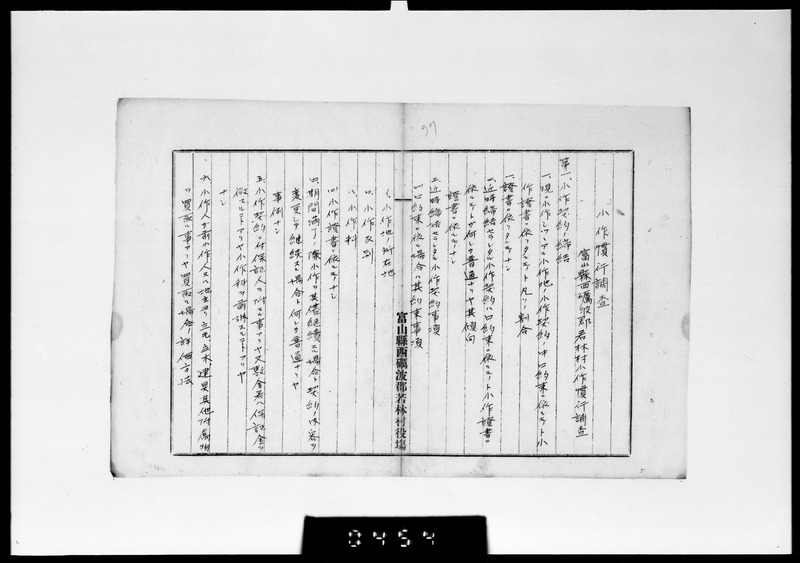 77
小作慣行調査
富山縣西礪波郡若林村小作慣行調査
第一、小作契約ノ締結
一、現ニ小作シツヽアル小作地ノ小作契約ノ中口約束ニ依ルモノト小
作證書ニ依リタルモノト凡ソノ割合
證書ニ依リタルモノナシ
二、近時締結セラルヽ小作契約ハ口約束ニ依ルモノト小作證書ニ
依ルモノト何レガ普通ナリヤ其傾向
證書ニ依ルモノナシ
三、近時締結セラルヽ小作契約事項
(一)口約束ニ依ル場合ハ其約束事項
イ、小作地ノ所在地
ロ、小作反別
ハ、小作料
(二)小作證書ニ依ルモノナシ
四、期間満了ノ際小作ヲ其儘継続スル場合ト契約ノ内容ヲ
変更シテ継続スル場合ト何レガ普通ナリヤ
事例ナシ
五、小作契約ニ付保証人ヲ附スル事アリヤ又敷金若ハ保証金ヲ
徴スルコトアリヤ小作料ヲ前納スルコトアリヤ
ナシ
六、小作人ガ前小作人又ハ地主ヨリ立毛、立木、建具其他附属物
ヲ買取ル事アリヤ買取ル場合ノ評価方法
富山縣西礪波郡若林村役場
0454